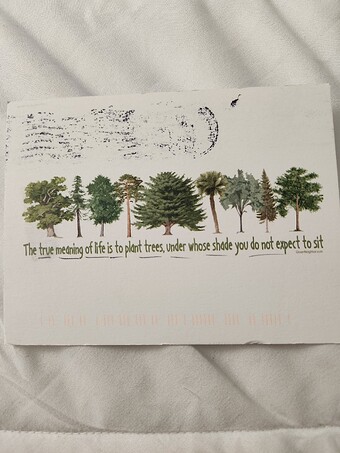 The true meaning of life is to plant trees, under whose shade you do not expect to sit